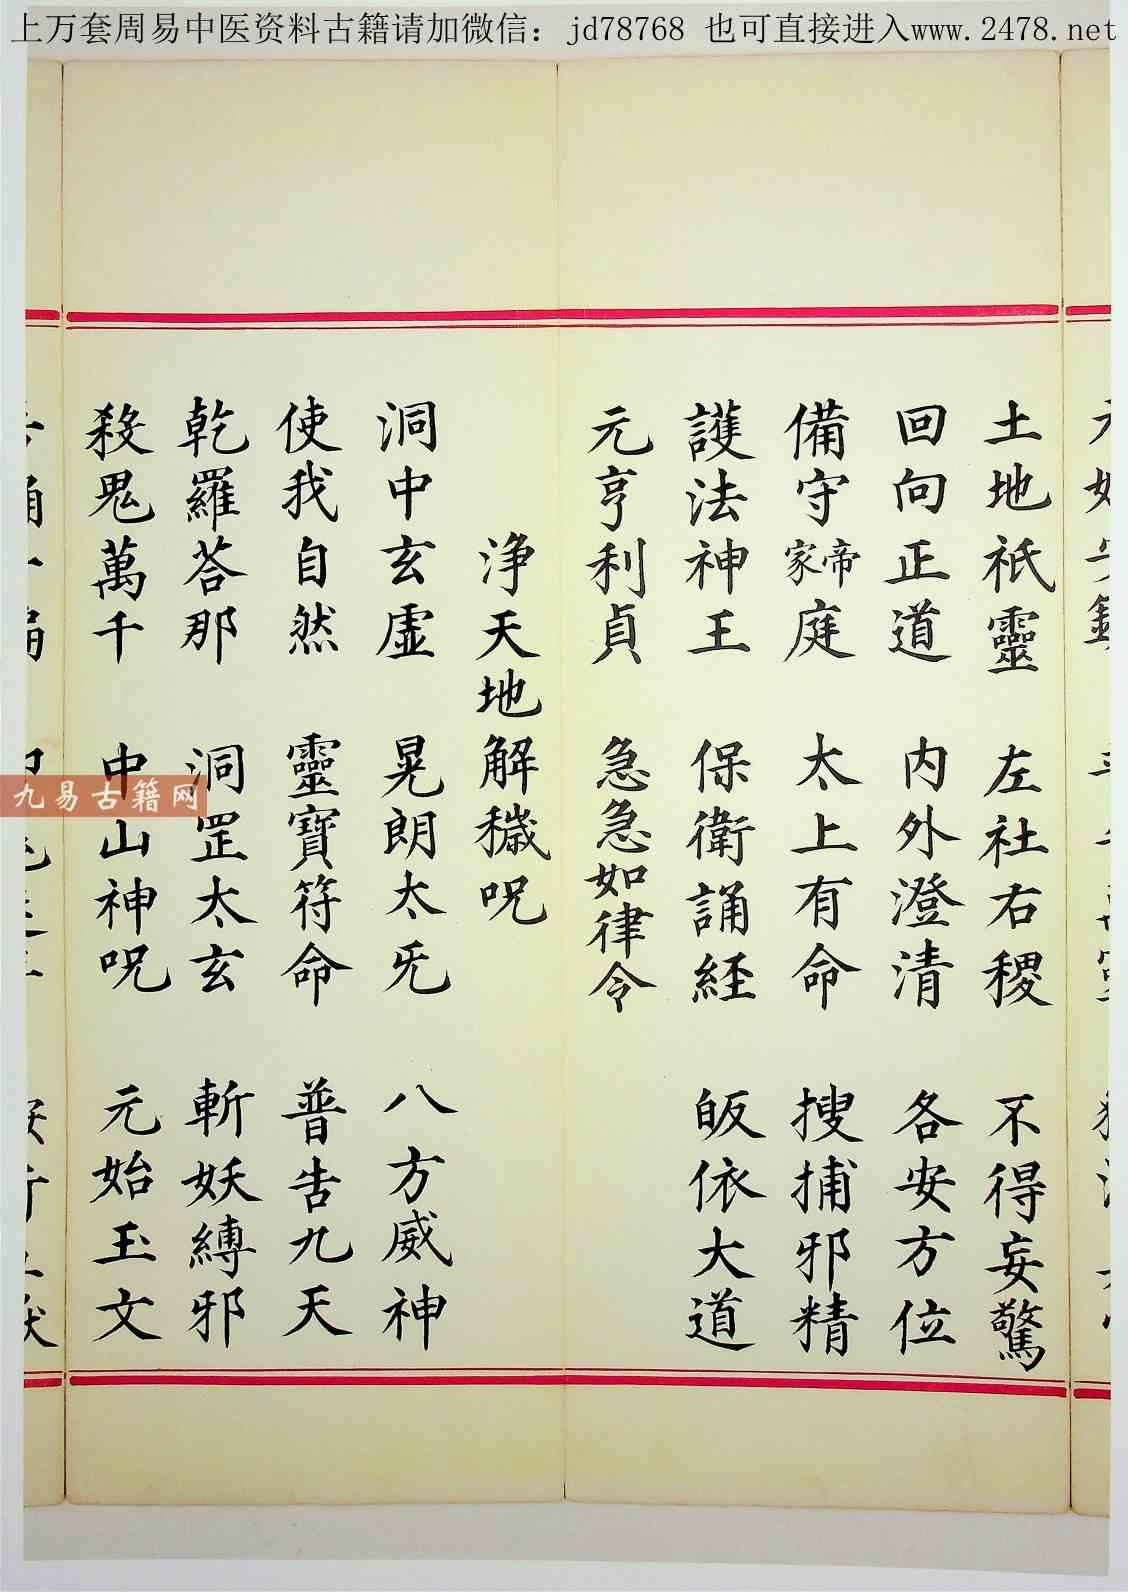 上万套周易中医资料古籍请加微信：jd78768 也可直接进入www.2478.net
土地祇靈 左社右稷 不得妄驚
回向正道 内外澄清 各安方位
備守家帝庭 太上有命 搜捕邪精
護法神王 保衛誦経 皈依大道
元亨利貞 急急如律令
浄天地解穢呪
洞中玄虚 晃朗太旡 八方威神
使我自然 靈寶符命 普告九天
乾羅荅那 洞罡太玄 斬妖縛邪
殺鬼萬千 中山神呪 元始玉文
九易古籍网